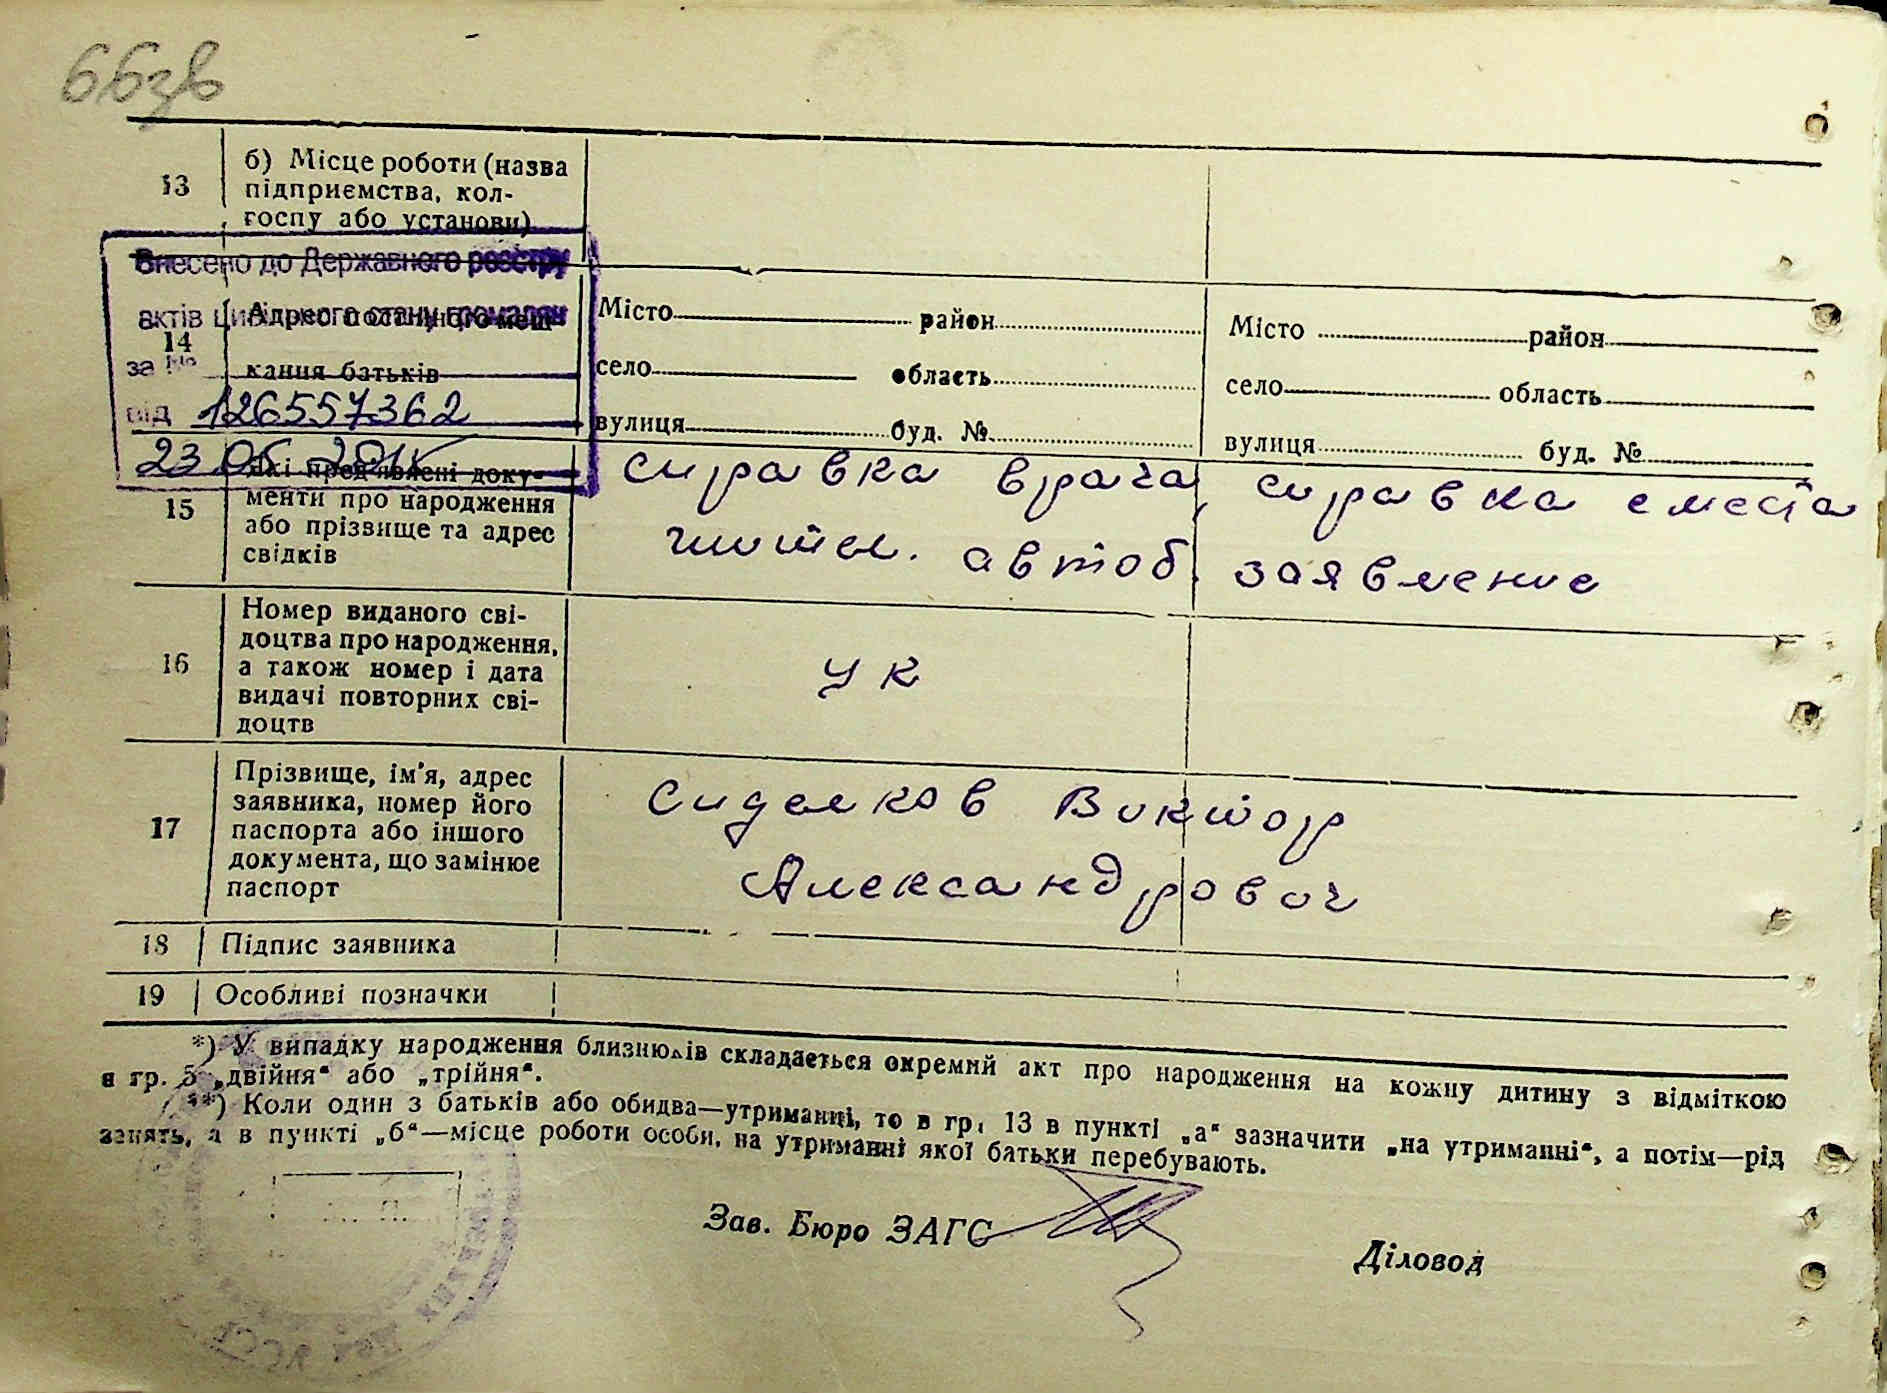 66зв
13
б) Місце роботи (назва
підприємства, кол-
госпу або установи)
Внесено до Державного реєстру
актів цивільного стану громадян
за №
від 126557362
23 05 2015
14
Адреса постійного меш-
кання батьків
Місто район
село область
вулиця буд. №
Місто район
село область
вулиця буд. №
15
Які пред'явлені доку-
менти про народження
або прізвище та адрес
свідків
справка врача, справка с места
автоб. заявление
16
Номер виданого сві-
доцтва про народження,
а також номер і дата
видачі повторних сві-
доцтв
УК
17
Прізвище, ім'я, адрес
заявника, номер його
паспорта або іншого
документа, що замінює
паспорт
Сиделков Виктор
Александрович
18 Підпис заявника
19 Особливі позначки
*) У випадку народження близнюків складається окремий акт про народження на кожну дитину з відміткою
в гр. 5 „двійня“ або „трійня“.
**) Коли один з батьків або обидва—утриманці, то в гр. 13 в пункті „а“ зазначити „на утриманні“, а потім—рід
занять, а в пункті „б“—місце роботи особи, на утриманні якої батьки перебувають.
Зав. Бюро ЗАГС
Діловод